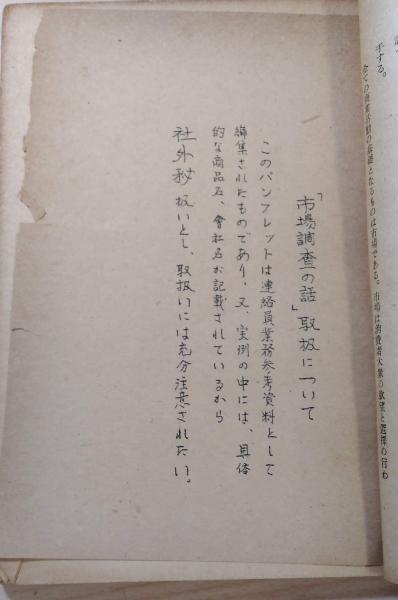 す。
手する。
全ての商業活動の基礎となるものは市場である。市場は消費者大衆の欲望と選擇の行わ
「市場調査の話」取扱について
このパンフレットは連絡員業務参考資料として
編集されたものであり、又、実例の中には、具体
的な商品名、會社名が記載されているから
社外秘扱いとし、取扱いには充分注意されたい。